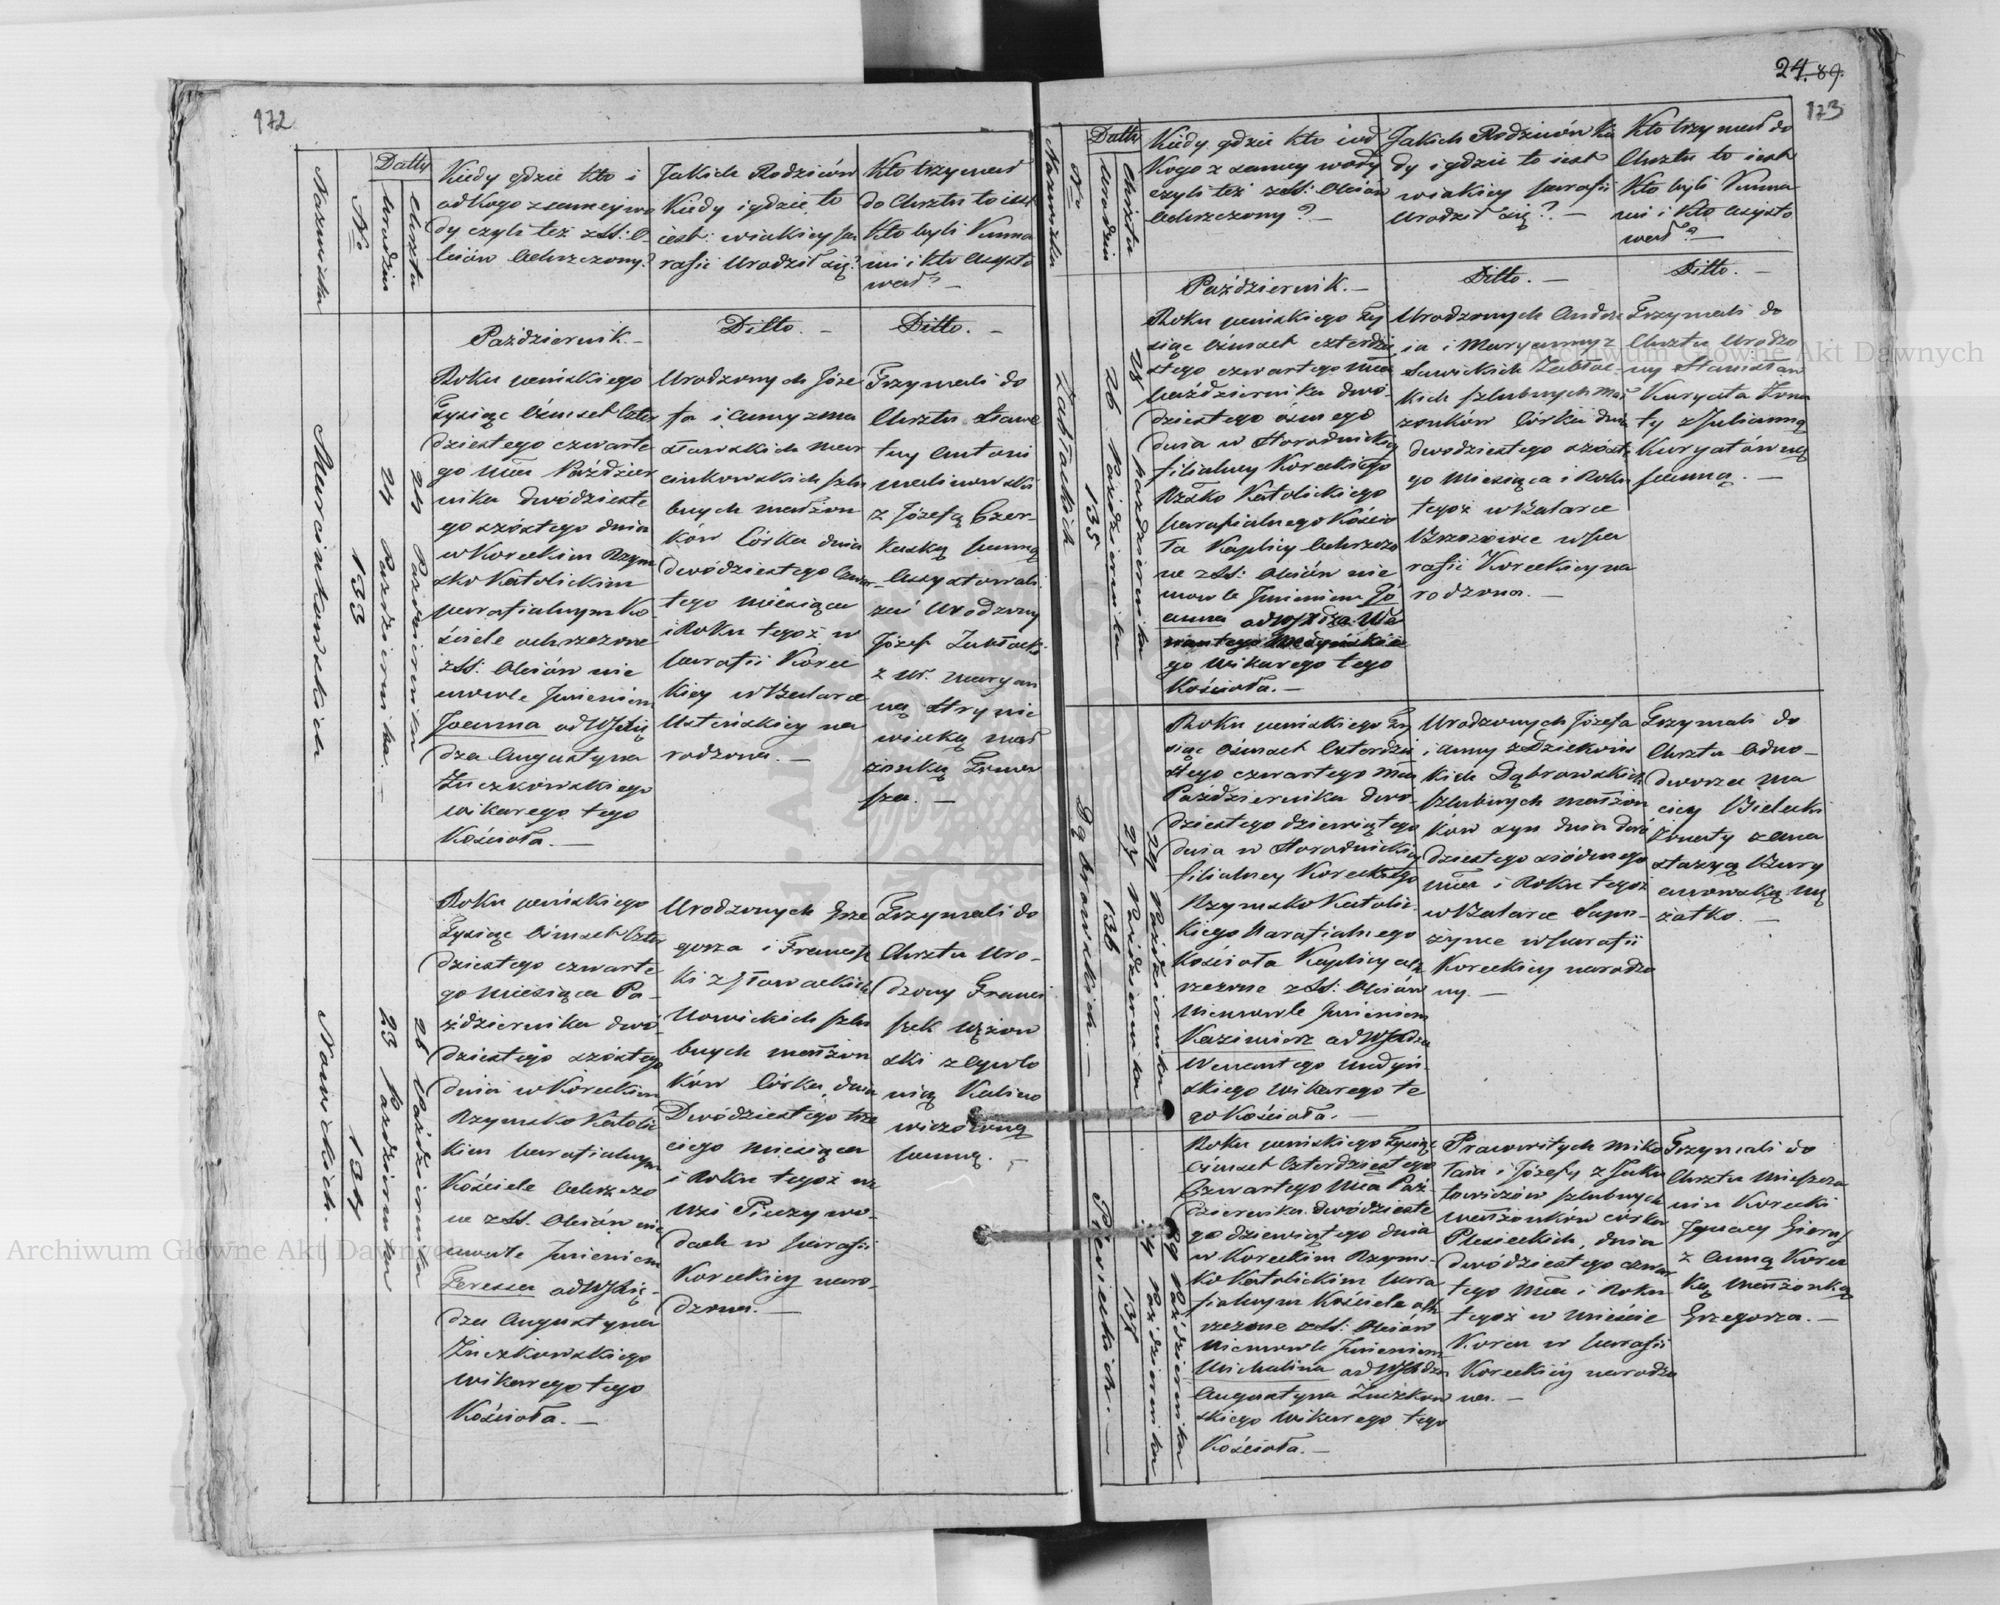 172
Nazwiska
No
Datty
Urodzin
Chrztu
Kiedy gdzie Kto i
od Kogo z samey wo
dy czyli też z SS: O
leiów Ochrzczony?
Jakich Rodziców
Kiedy i gdzie to
iest: w iakiey pa
rafii Urodził się?
Kto trzymał
do Chrztu to iest
Kto byli Kuma
mi i kto Assysto
wał? —
Październik. —
Ditto. —
Ditto. —
Marcinkowskich
133
24 Października. —
26 Października
Roku pańskiego
Tysiąc Ośmset Czter
dziestego czwarte
go Mca Paździer
nika dwódzieste
go szóstego dnia
w Koreckim Rzym
sko Katolickim
parafialnym Ko
ściele ochrzczone
z SS: Oleiów nie
mowle Jmieniem
Joanna od WJXię
dza Augustyna
Żuczkowskiego
wikarego tego
Kościoła. —
Urodzonych Józe
fa i Anny z Ma
sławskich Mar
cinkowskich szlu
bnych małżon
ków Córka dnia
dwódziestego Czwar
tego miesiąca
i Roku tegoż w
parafii Korec
kiey w Futorze
Usteńskiey na
rodzona. —
Trzymali do
Chrztu Szlache
tny Antoni
Malinowski
z Józefą Czer-
kaską panną
Assystowali
zaś Urodzony
Józef Zabłocki
z Ur. Maryan
ną Hrynie
wiecką mał
żonką Toma
sza. —
Nowickich. —
134
23 Października
26 Października
Roku pańskiego
Tysiąc Ośmset Czter
dziestego czwarte
go miesiąca Pa-
ździernika dwó
dziestego szóstego
dnia w Koreckim
Rzymsko Katolic
kim parafialnym
Kościele Ochrzczo
ne z SS. Oleiów nie
mowle Jmieniem
Teressa od WJXię-
dza Augustyna
Żuczkowskiego
wikarego tego
Kościoła. —
Urodzonych Grze
gorza i Francisz
ki z Słowackich
Nowickich szlu
bnych małżon
ków Córka, dnia
Dwódziestego trze
ciego miesiąca
i Roku tegoż we
wsi Pieszywo-
dach w parafii
Koreckiey naro-
dzona. —
Trzymali do
Chrztu Uro-
dzony Franci
szek Wąsow
ski z Apolo
nią Kalino
wiczówną
panną. —
24. 89.
173
Nazwiska
No
Datty
Urodzin
Chrztu
Kiedy gdzie kto i od
Kogo z samey wody
czyli też z SS: Oleiów
Ochrzczony? —
Jakich Rodziców Kie
dy i gdzie to iest
w iakiey parafii
Urodził się? —
Kto trzymał do
Chrztu to iest
Kto byli Kuma
mi i Kto Assysto
wał? —
Październik. —
Ditto. —
Ditto. —
Zabłockich
135
26 Października
28 Października
Roku pańskiego Ty
siąc Ośmset czterdzie
stego czwartego Mca
października dwó-
dziestego ósmego
dnia w Horodnickiey
filialney Koreckiego
Rzsko Katolickiego
parafialnego Kościo
ła Kaplicy Ochrzczo
ne z SS: Oleiów nie
mowle Jmieniem Jo
anna od WJXdza We
nantego Medyńskie
go Wikarego tego
Kościoła. —
Urodzonych Andrze
ia i Maryanny z
Sawickich Zabłoc-
kich szlubnych Mał
żonków Córka dnia
dwódziestego szóste
go Miesiąca i Roku
tegoż w Futorze
Brzozowce w pa
rafii Koreckiey na
rodzona. —
Trzymali do
Chrztu Urodzo
ny Stanisław
Kuryata Żona
ty z Julianną
Kuryatówną
panną. —
Dąbrowskich. —
136
27 Października
29 Października
Roku pańskiego Ty
siąc Ośmset Czterdzie
stego czwartego Mca
Października dwó-
dziestego dziewiątego
dnia w Horodnickiey
filialney Koreckiego
Rzymsko Katolic
kiego Parafialnego
Kościoła Kaplicy och
rzczone z SS: Oleiów
Niemowle Jmieniem
Kazimierz od WJXdza
Wenantego Medyń
skiego Wikarego te
go Kościoła. —
Urodzonych Józefa
i Anny z Dziekoń
skich Dąbrowskich
szlubnych małżon
ków syn dnia dwó
dziestego siódmego
Mca i Roku tegoż
w Futorze Sapo-
żynie w parafii
Koreckiey narodzo
ny. —
Trzymali do
Chrztu Odno-
dworzec Ma
ciey Bielecki
Żonaty z Ana
stazyą Bury
anowską mę
żatką. —
Plesieckich. —
137
24 Października
29 Października
Roku pańskiego Tysiąc
Ośmset Czterdziestego
Czwartego Mca Paź-
dziernika dwódzieste
go dziewiątego dnia
w Koreckim Rzyms-
ko Katolickim para
fialnym Kościele och
rzczone z SS: Oleiów
Niemowle Jmieniem
Michalina od WJXdza
Augustyna Żuczkow
skiego Wikarego tego
Kościoła. —
Prawowitych Miko
łaia i Józefy z Jaku
bowiczów szlubnych
małżonków córka
Plesieckich, dnia
dwódziestego czwar
tego Mca i Roku
tegoż w mieście
Korcu w parafii
Koreckiey narodzo
na. —
Trzymali do
Chrztu Mieszcza
nin Korecki
Ignacy
z Anną Korec
ką Małżonką
Grzegorza. —
Archiwum Główne Akt Dawnych
Archiwum Główne Akt Dawnych